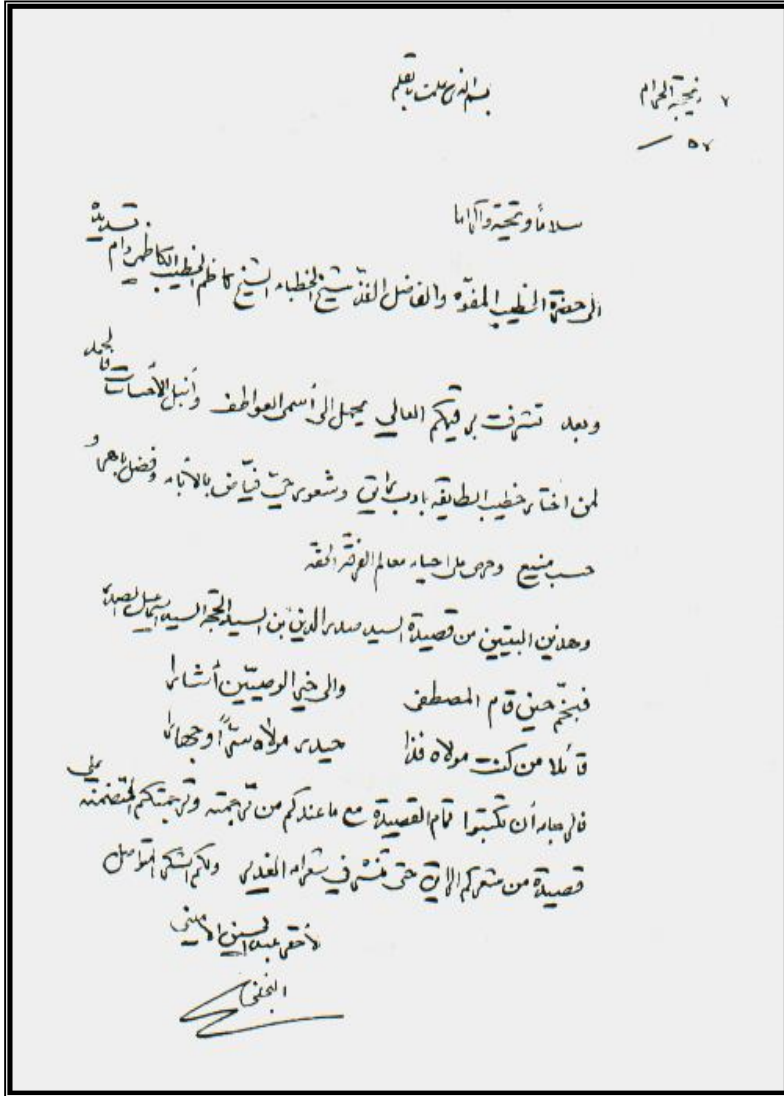 ٧ ذيحجة الحرام
٥٧
بسم الذي علمت بالقلم
سلاماً وتحية واكراما
الى حضرة الخطيب المفوّه والفاضل الفذّ شيخ الخطباء الشيخ كاظم الخطيب الكاظمي دام تسديده
وبعد تشرفت برقيكم العالي يحمل الى أسمى العواطف وأنبل الأحساسات فالحمد
لمن اختار خطيب الطايفه بادب رائق وشعور حيّ فيّاض بالأباء وفضل باهر و
حسب منيع وحرص على احياء معالم الفرقة الحقه
وهذين البيتين من قصيدة السيد صدر الدين بن السيد الحجه السيد اسماعيل الصدر
فبخمّ حين قام المصطفى والى خير الوصيّين أشارا
قائلا من كنت مولاه فذا حيدر مولاه سرّاً وجهارا
فالرجاء أن تكتبوا تمام القصيدة مع ما عندكم من ترجمته وترجمتكم المتضمنه على
قصيدة من شعركم الراقي حتى تنشر في شعراء الغدير ولكم الشكر المتواصل
الأحقر عبد الحسين الاميني
النجفي